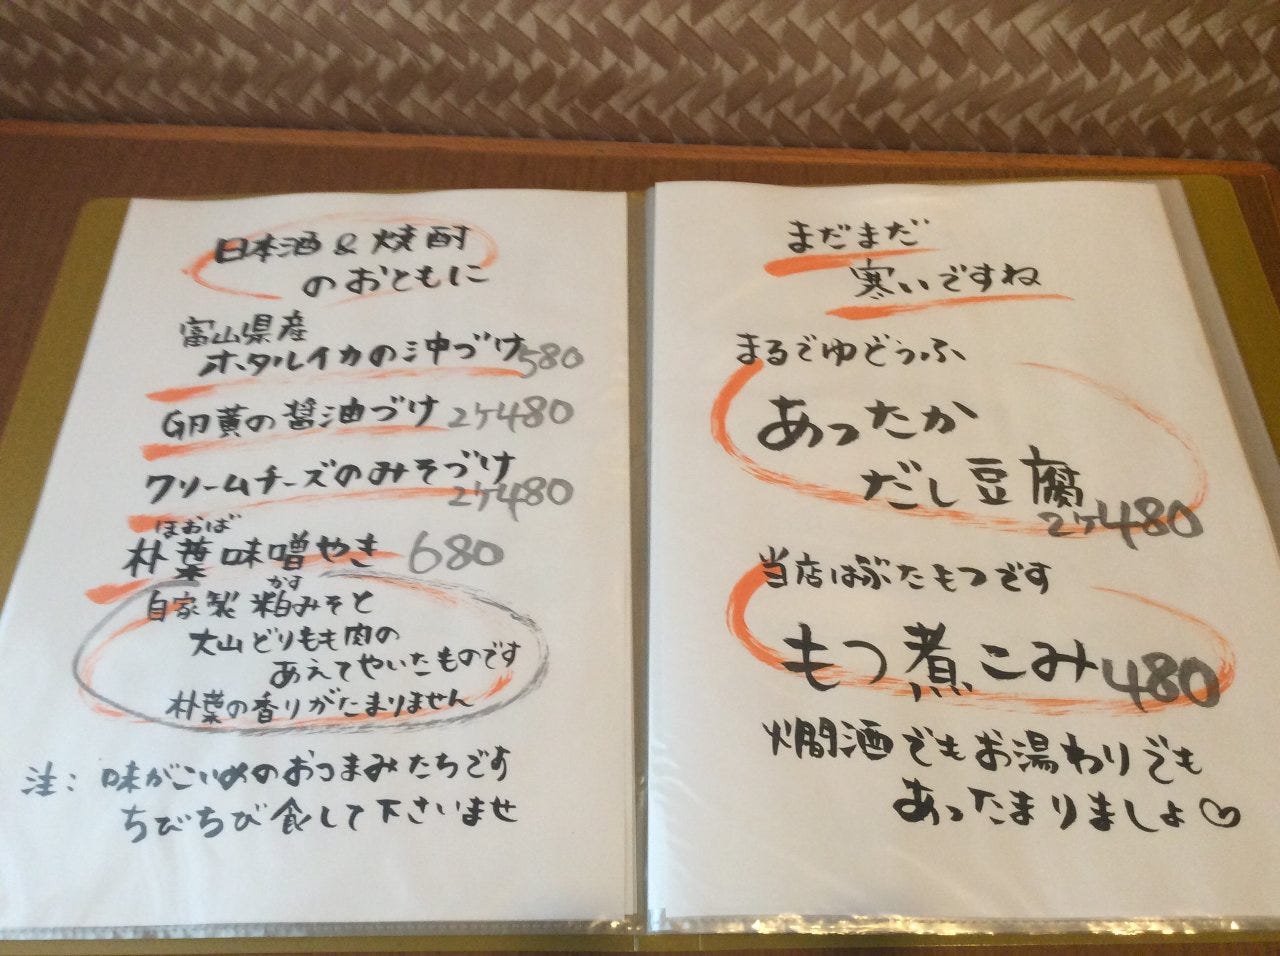 日本酒&焼酎
のおともに
富山県産
ホタルイカの沖づけ580
卵黄の醤油づけ 2ケ480
クリームチーズのみそづけ
2ケ480
ほおば
朴葉味噌やき 680
かす
自家製粕みそと
大山どりもも肉の
あえてやいたものです
朴葉の香りがたまりません
注:味がこいめのおつまみたちです
ちびちび食して下さいませ
まだまだ
寒いですね
まるでゆどうふ
あったか
だし豆腐
2ケ480
当店はぶたもつです
もつ煮こみ480
燗酒でもお湯わりでも
あったまりましょ♡